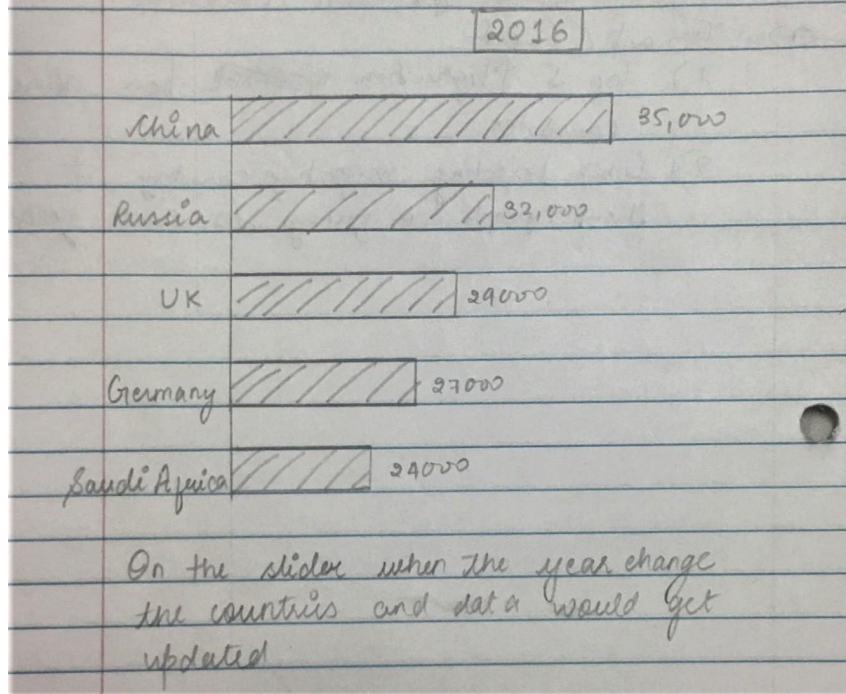 2016
China 35,000
Russia 32,000
UK 29000
Germany 27000
Saudi Africa 24000
On the slider when the year change
the countries and data would get
updated